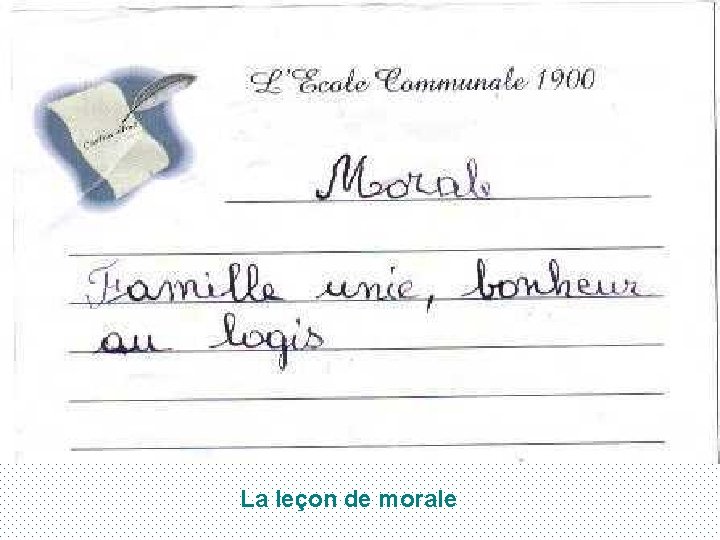 L'Ecole Communale 1900
Morale
Famille unie, bonheur
au logis
La leçon de morale